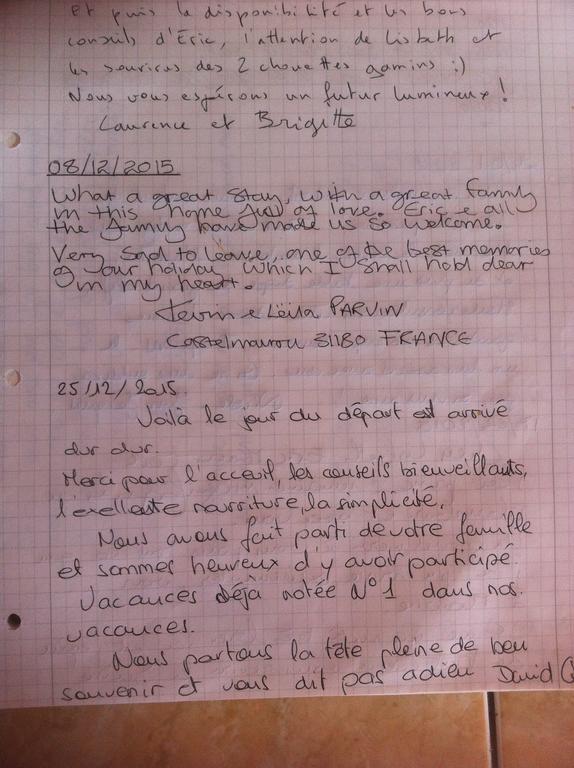 Et puis la disponibilité et les bons
conseils d'Éric, l'attention de Lisbeth et
les sourires des 2 chouettes gamins :)
Nous vous espérons un futur lumineux !
Laurence et Brigitte
08/12/2015
What a great stay, with a great family
in this home full of love. Eric e all
the family have made us so welcome.
Very sad to leave, one of the best memories
of our holiday which I shall hold dear
in my heart.
Kevin e Lëila PARVIN
Castelmaurou 31180 FRANCE
25/12/2015.
Voilà le jour du départ est arrivé
dur dur.
Merci pour l'acceuil, les conseils bienveillants,
l'exellente nourriture, la simplicité.
Nous avons fait parti de votre famille
et sommes heureux d'y avoir participé.
Vacances déjà notée N°1 dans nos
vacances.
Nous partons la tête pleine de beu
souvenir et vous dit pas adieu David